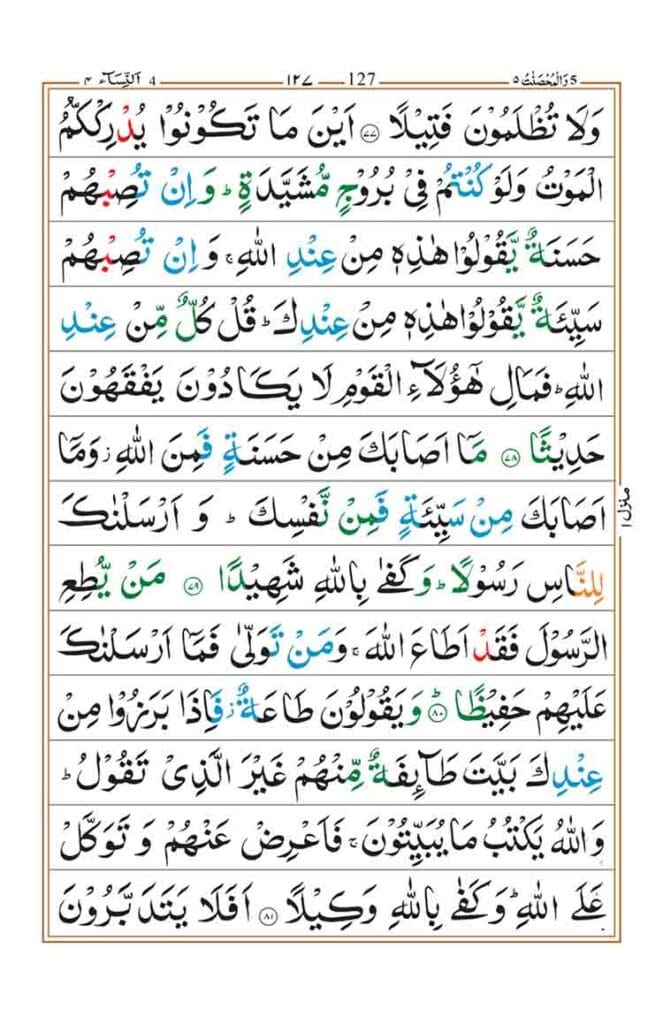 5 وَالْمُحْصَنٰتُ ٥ 127 ١٢٧ 4 اَلنِّسَآء ٤
وَلَا تُظْلَمُوْنَ فَتِيْلًا ۝٧٧ اَيْنَ مَا تَكُوْنُوْا يُدْرِكْكُّمُ
الْمَوْتُ وَلَوْ كُنْتُمْ فِيْ بُرُوْجٍ مُّشَيَّدَةٍ ؕ وَاِنْ تُصِبْهُمْ
حَسَنَةٌ يَّقُوْلُوْا هٰذِهٖ مِنْ عِنْدِ اللّٰهِ ۚ وَاِنْ تُصِبْهُمْ
سَيِّئَةٌ يَّقُوْلُوْا هٰذِهٖ مِنْ عِنْدِكَ ؕ قُلْ كُلٌّ مِّنْ عِنْدِ
اللّٰهِ ؕ فَمَالِ هٰٓؤُلَآءِ الْقَوْمِ لَا يَكَادُوْنَ يَفْقَهُوْنَ
حَدِيْثًا ۝٧٨ مَاۤ اَصَابَكَ مِنْ حَسَنَةٍ فَمِنَ اللّٰهِ ؗ وَمَاۤ
اَصَابَكَ مِنْ سَيِّئَةٍ فَمِنْ نَّفْسِكَ ؕ وَاَرْسَلْنٰكَ
لِلنَّاسِ رَسُوْلًا ؕ وَكَفٰى بِاللّٰهِ شَهِيْدًا ۝٧٩ مَنْ يُّطِعِ
الرَّسُوْلَ فَقَدْ اَطَاعَ اللّٰهَ ۚ وَمَنْ تَوَلّٰى فَمَاۤ اَرْسَلْنٰكَ
عَلَيْهِمْ حَفِيْظًا ؕ۝٨٠ وَيَقُوْلُوْنَ طَاعَةٌ ؗ فَاِذَا بَرَزُوْا مِنْ
عِنْدِكَ بَيَّتَ طَآئِفَةٌ مِّنْهُمْ غَيْرَ الَّذِيْ تَقُوْلُ ؕ
وَاللّٰهُ يَكْتُبُ مَا يُبَيِّتُوْنَ ۚ فَاَعْرِضْ عَنْهُمْ وَتَوَكَّلْ
عَلَى اللّٰهِ ؕ وَكَفٰى بِاللّٰهِ وَكِيْلًا ۝٨١ اَفَلَا يَتَدَبَّرُوْنَ
منزل ١